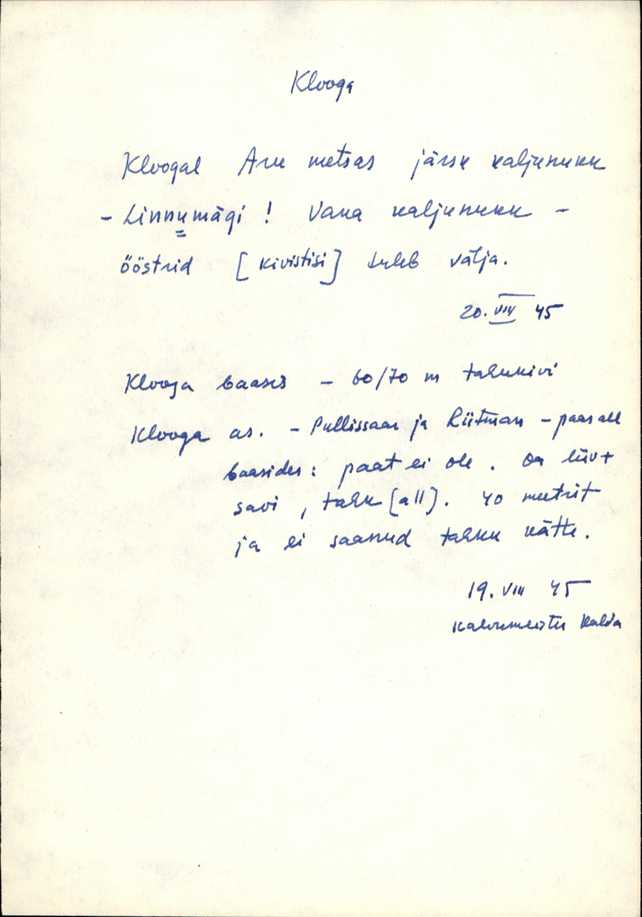 Klooga
Kloogal Aru metsas järsk kaljunukk
- Linnumägi! Vana kaljunukk -
ööstrid [kivistisi] tuleb välja.
20. VIII 45
Klooga baasis - 60/70 m tahukivi
Klooga as. - Pullissaar ja Riitman - paas all
baasides: paat ei ole. On liiv+
savi, tahk [all]. 40 meetrit
ja ei saanud tahku kätte.
19. VIII 45
Kaevumeister Kalda